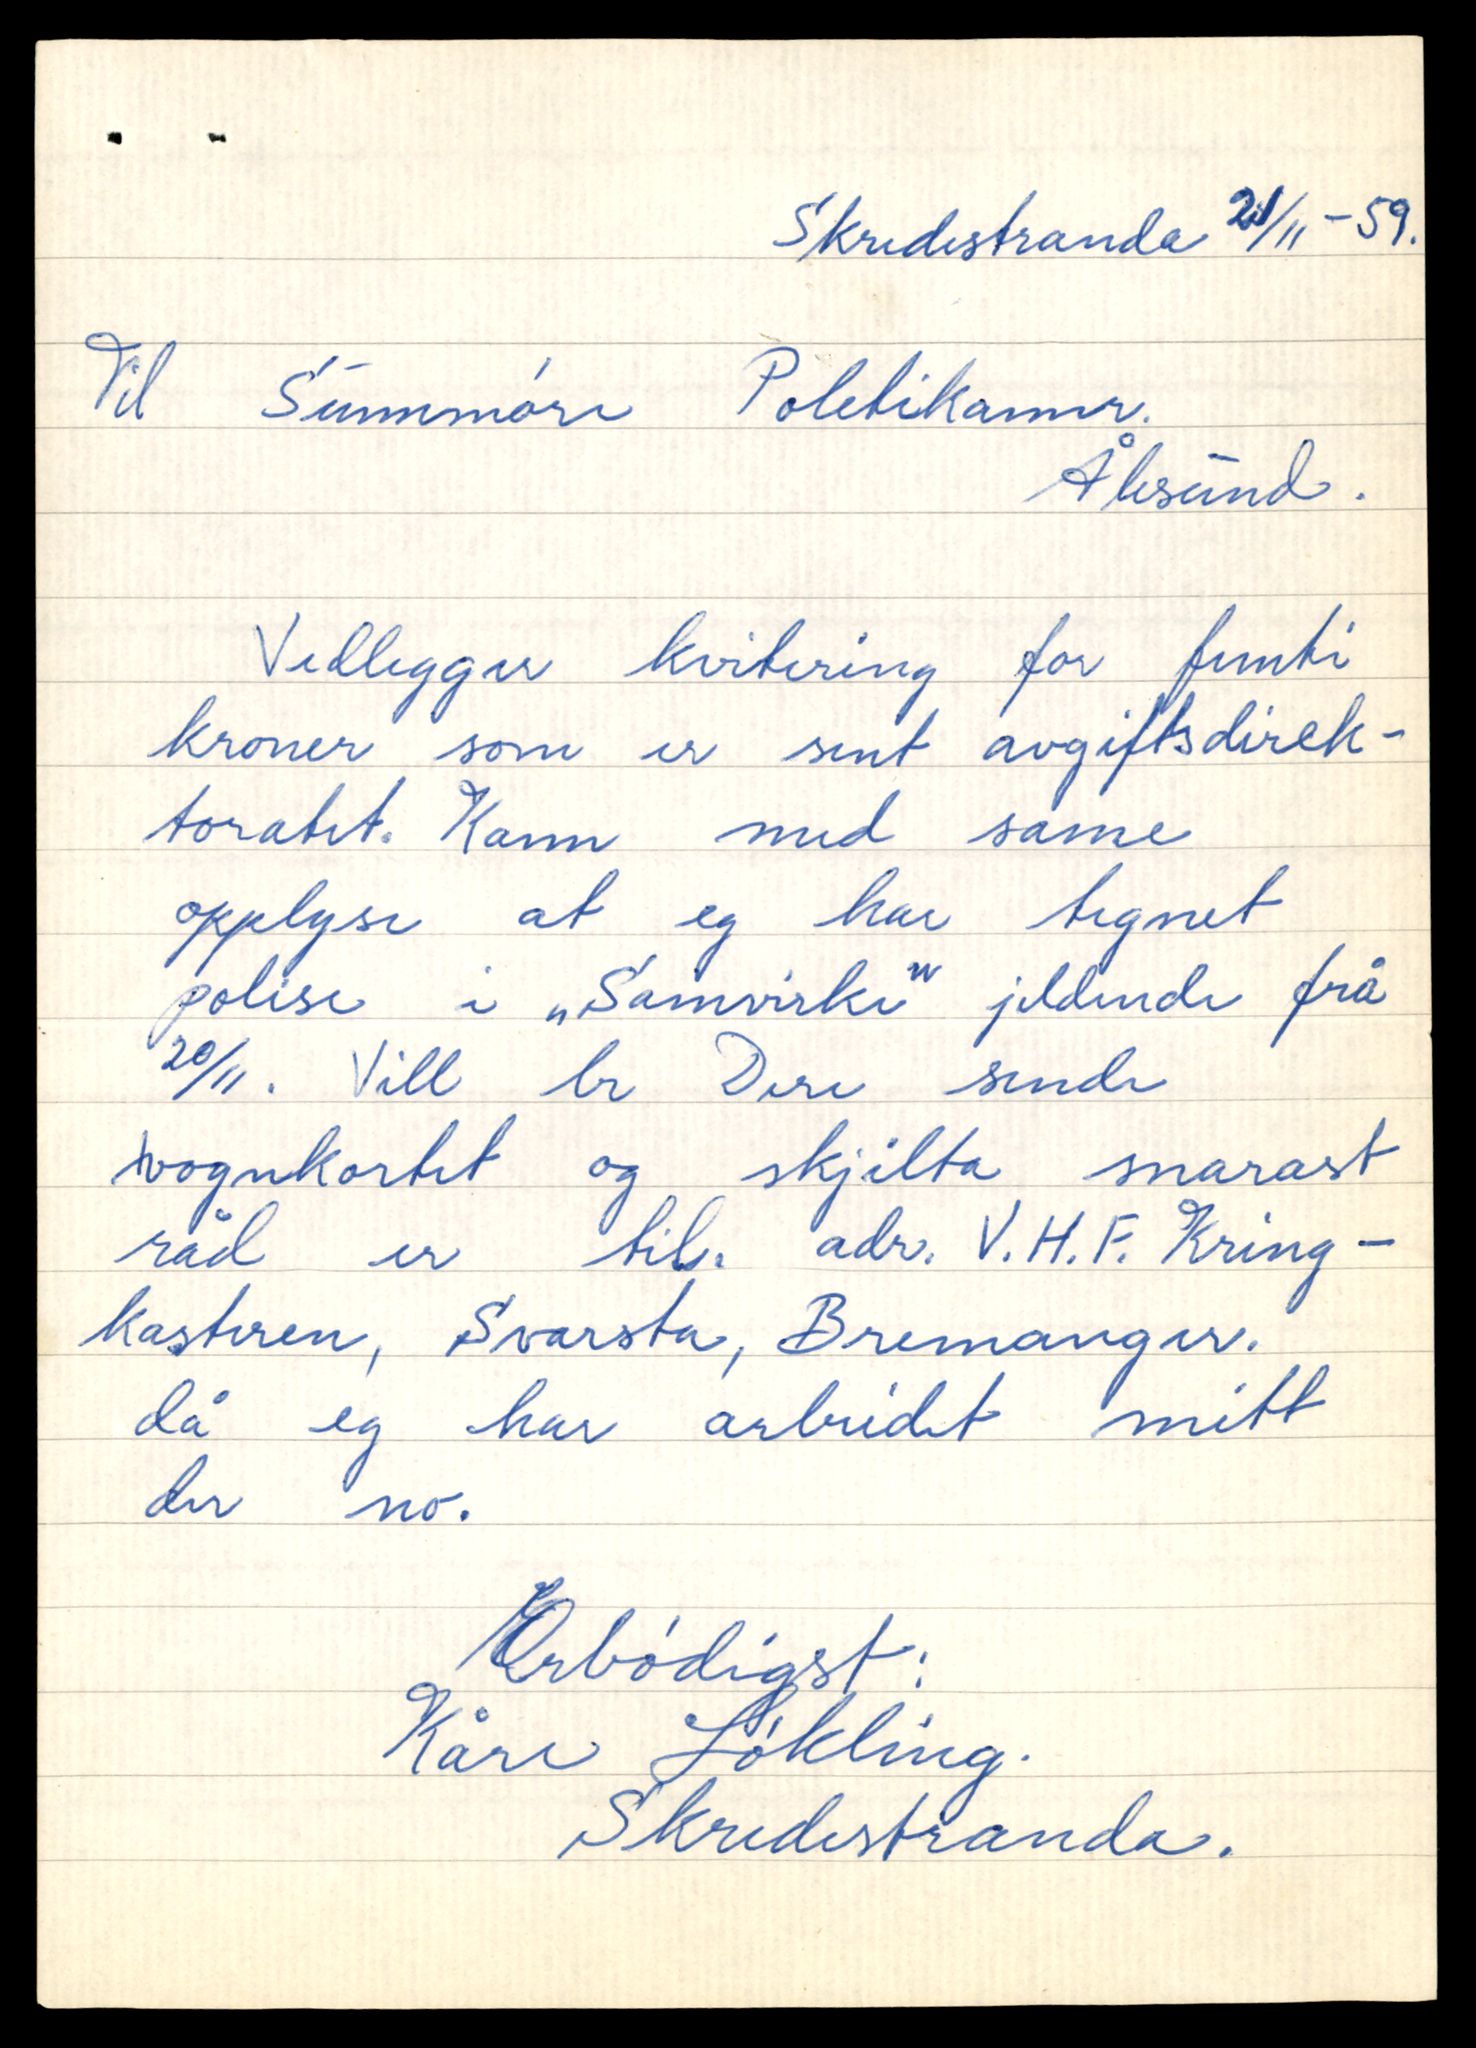 Skredestranda 21/11 - 59.
Til Sunnmøre Poletikamer.
Ålesund.
Vedlegger kvitering for femti
kroner som er sent avgiftsdirek-
toratet. Kann med same
opplyse at eg har tegnet
polise i „Samvirke" jeldende frå
20/11. Vill be Dere sende
vognkortet og skjilta snarast
råd er til. adr. V.H.F. Kring-
kasteren, Svarsta, Bremanger.
då eg har arbeidet mitt
der no.
Erbödigst:
Kåre Lökling.
Skredestranda.